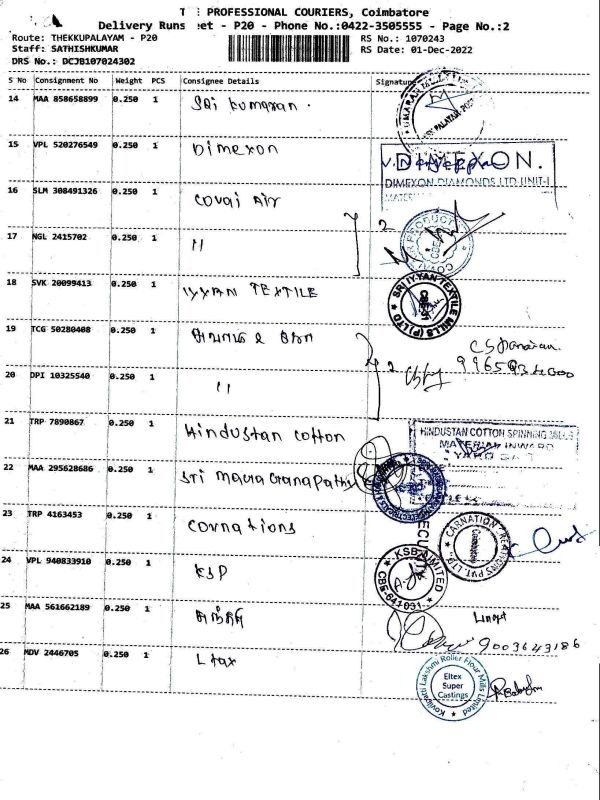 PROFESSIONAL COURIERS, Coimbatore
Delivery Runsheet - P20 - Phone No.:0422-3505555 - Page No.:2
Route: THEKKUPALAYAM - P20 RS No.: 1070243
Staff: SATHISHKUMAR RS Date: 01-Dec-2022
DRS No.: DCJB107024302
S No Consignment No Weight PCS Consignee Details Signature
14 MAA 858658899 0.250 1 Sri Kumaran
15 VPL 520276549 0.250 1 Dimexon
DIMEXON.
DIMEXON DIAMONDS LTD UNIT-I
16 SLM 308491326 0.250 1 Covai Air
17 NGL 2415702 0.250 1 "
2
18 SVK 20099413 0.250 1 IYYAN TEXTILE
SRI IYYAN TEXTILE MILLS (P) LTD
CBE-31
19 TCG 50280408 0.250 1
20 DPI 10325540 0.250 1 "
2
21 TRP 7890867 0.250 1 Hindustan Cotton
HINDUSTAN COTTON SPINNING MILLS
MATERIAL INWARD
22 MAA 295628686 0.250 1 Sri
23 TRP 4163453 0.250 1 Cornations
24 VPL 940833910 0.250 1 KSP
KSB LIMITED
CBE-641 031
25 MAA 561662189 0.250 1
9003643186
26 MDV 2446705 0.250 1 L tax
Kovilpatti Lakshmi Roller Flour Mills Limited
Eltex
Super
Castings